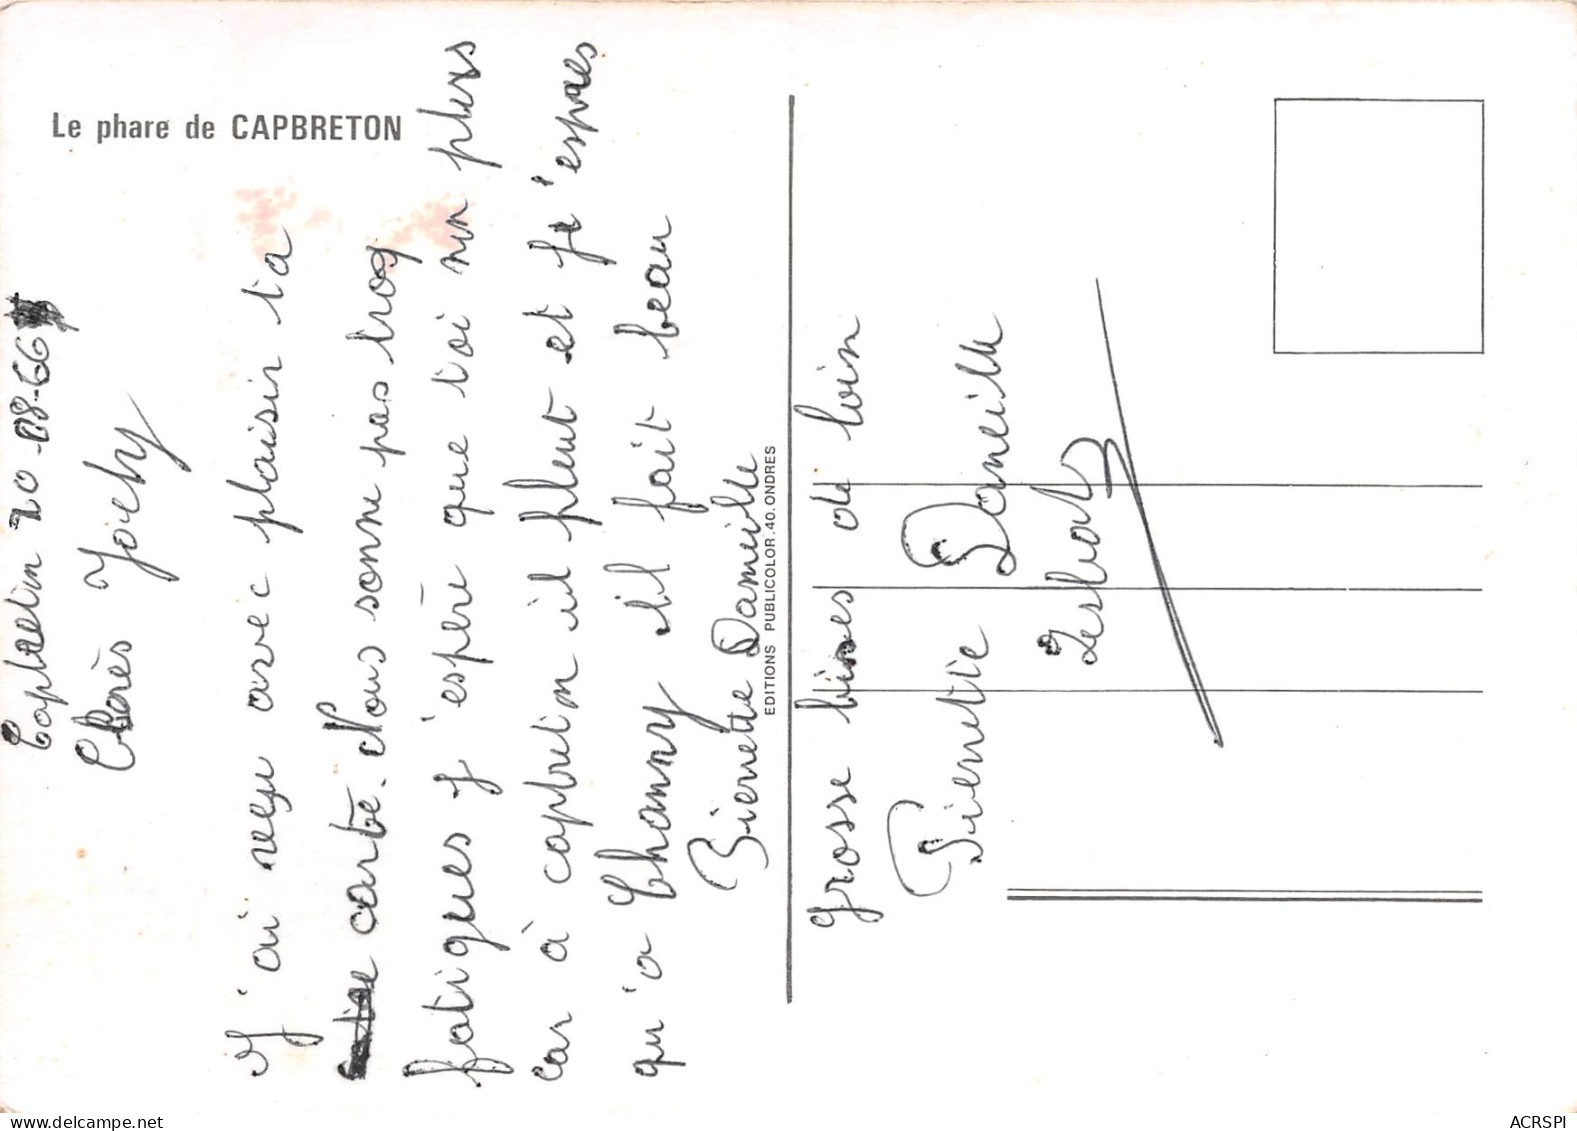 Le phare de CAPBRETON
Capbretin 20-08-66
Chères
J'ai reçu avec plaisir ta
carte. Nous somme pas trop
fatigues j'espère que toi non plus
car à capbretin il pleut et je 'espres
qu'a Channy il fait beau
Pierrette Danielle
EDITIONS PUBLICOLOR.40.ONDRES
grosse bises de loin
Pierrette Danielle
ACRSPI
www.delcampe.net